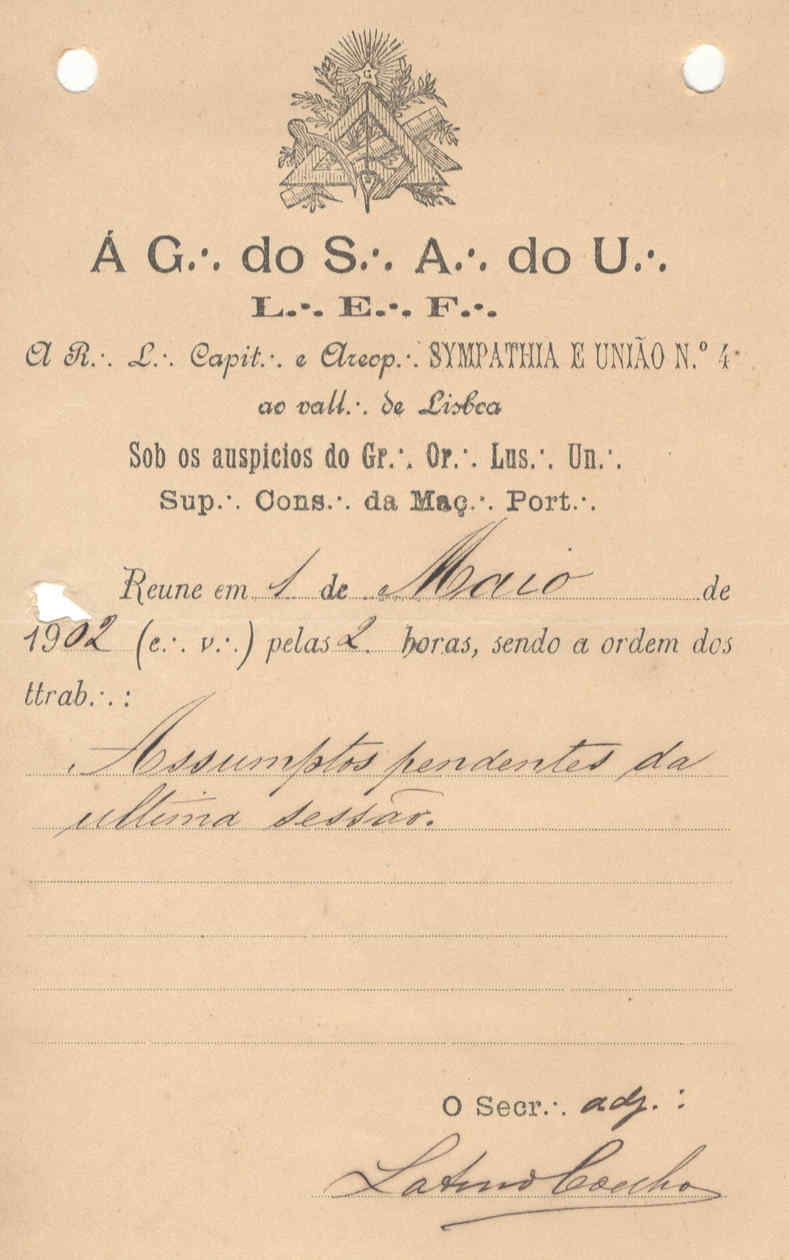 G
Á G.∴ do S.∴ A.∴ do U.∴
L.∴ E.∴ F.∴
A R.∴ L.∴ Capit.∴ e Areop.∴ SYMPATHIA E UNIÃO N.º 4
ao vall.∴ de Lisboa
Sob os auspicios do Gr.∴ Or.∴ Lus.∴ Un.∴
Sup.∴ Cons.∴ da Maç.∴ Port.∴
Reune em 1 de Maio de
1902 (e.∴ v.∴) pelas 2 horas, sendo a ordem dos
ttrab.∴ :
Assumptos pendentes da
ultima sessão.
O Secr.∴ adj. :
Latino Coelho